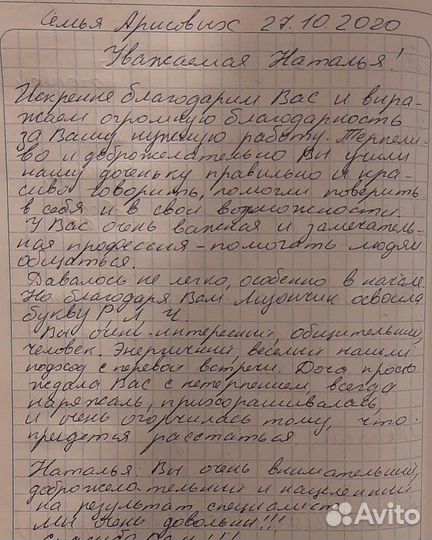 Семья Арисовых 27.10.2020
Уважаемая Наталья!
Искренне благодарим Вас и выра-
жаем огромную благодарность
за Вашу нужную работу. Терпели-
во и доброжелательно Вы учили
нашу доченьку правильно и кра-
сиво говорить, помогли поверить
в себя и в свои возможности.
У Вас очень важная и замечатель-
ная профессия - помогать людям
общаться.
Давалось не легко, особенно в начале.
Но благодаря Вам освоила
букву Р, Л, Ч.
Вы очень интересный, общительный,
человек. Энергичный, веселый нашли
подход с первой встречи. Дочь просто
ждала Вас с нетерпением, всегда
наряжаль, прихорашивалась,
и очень огорчилась тому, что
придется расстаться.
Наталья! Вы очень внимательный,
доброжелательный и нацеленный
на результат специалист
Мы очень довольны!!!
Avito